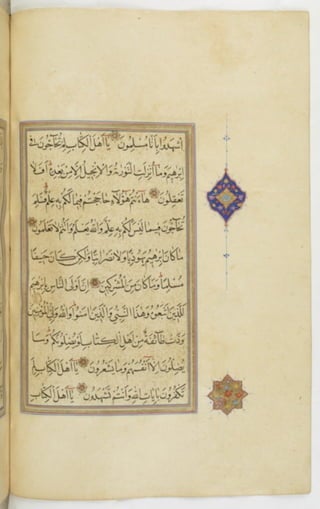 اشْهَدُوا بِاَنَّا مُسْلِمُونَ يَا اَهْلَ الْكِتَابِ لِمَ تُحَاجُّونَ فِي
اِبْرٰهِيمَ وَمَا اُنْزِلَتِ التَّوْرٰيةُ وَالْاِنْجِيلُ اِلَّا مِنْ بَعْدِهِ اَفَلَا
تَعْقِلُونَ هَا اَنْتُمْ هٰؤُلَاءِ حَاجَجْتُمْ فِيمَا لَكُمْ بِهِ عِلْمٌ فَلِمَ
تُحَاجُّونَ فِيمَا لَيْسَ لَكُمْ بِهِ عِلْمٌ وَاللهُ يَعْلَمُ وَاَنْتُمْ لَا تَعْلَمُونَ
مَا كَانَ اِبْرٰهِيمُ يَهُودِيًّا وَلَا نَصْرَانِيًّا وَلٰكِنْ كَانَ حَنِيفًا
مُسْلِمًا وَمَا كَانَ مِنَ الْمُشْرِكِينَ اِنَّ اَوْلَى النَّاسِ بِاِبْرٰهِيمَ
لَلَّذِينَ اتَّبَعُوهُ وَهٰذَا النَّبِيُّ وَالَّذِينَ اٰمَنُوا وَاللهُ وَلِيُّ الْمُؤْمِنِينَ
وَدَّتْ طَائِفَةٌ مِنْ اَهْلِ الْكِتَابِ لَوْ يُضِلُّونَكُمْ وَمَا
يُضِلُّونَ اِلَّا اَنْفُسَهُمْ وَمَا يَشْعُرُونَ يَا اَهْلَ الْكِتَابِ لِمَ
تَكْفُرُونَ بِاٰيَاتِ اللهِ وَاَنْتُمْ تَشْهَدُونَ يَا اَهْلَ الْكِتَابِ